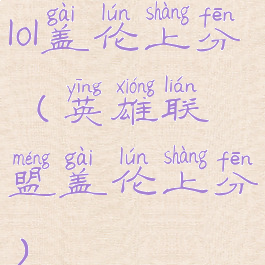 gài lún shàng fēn
lol盖伦上分
yīng xióng lián
（英雄联
méng gài lún shàng fēn
盟盖伦上分
）